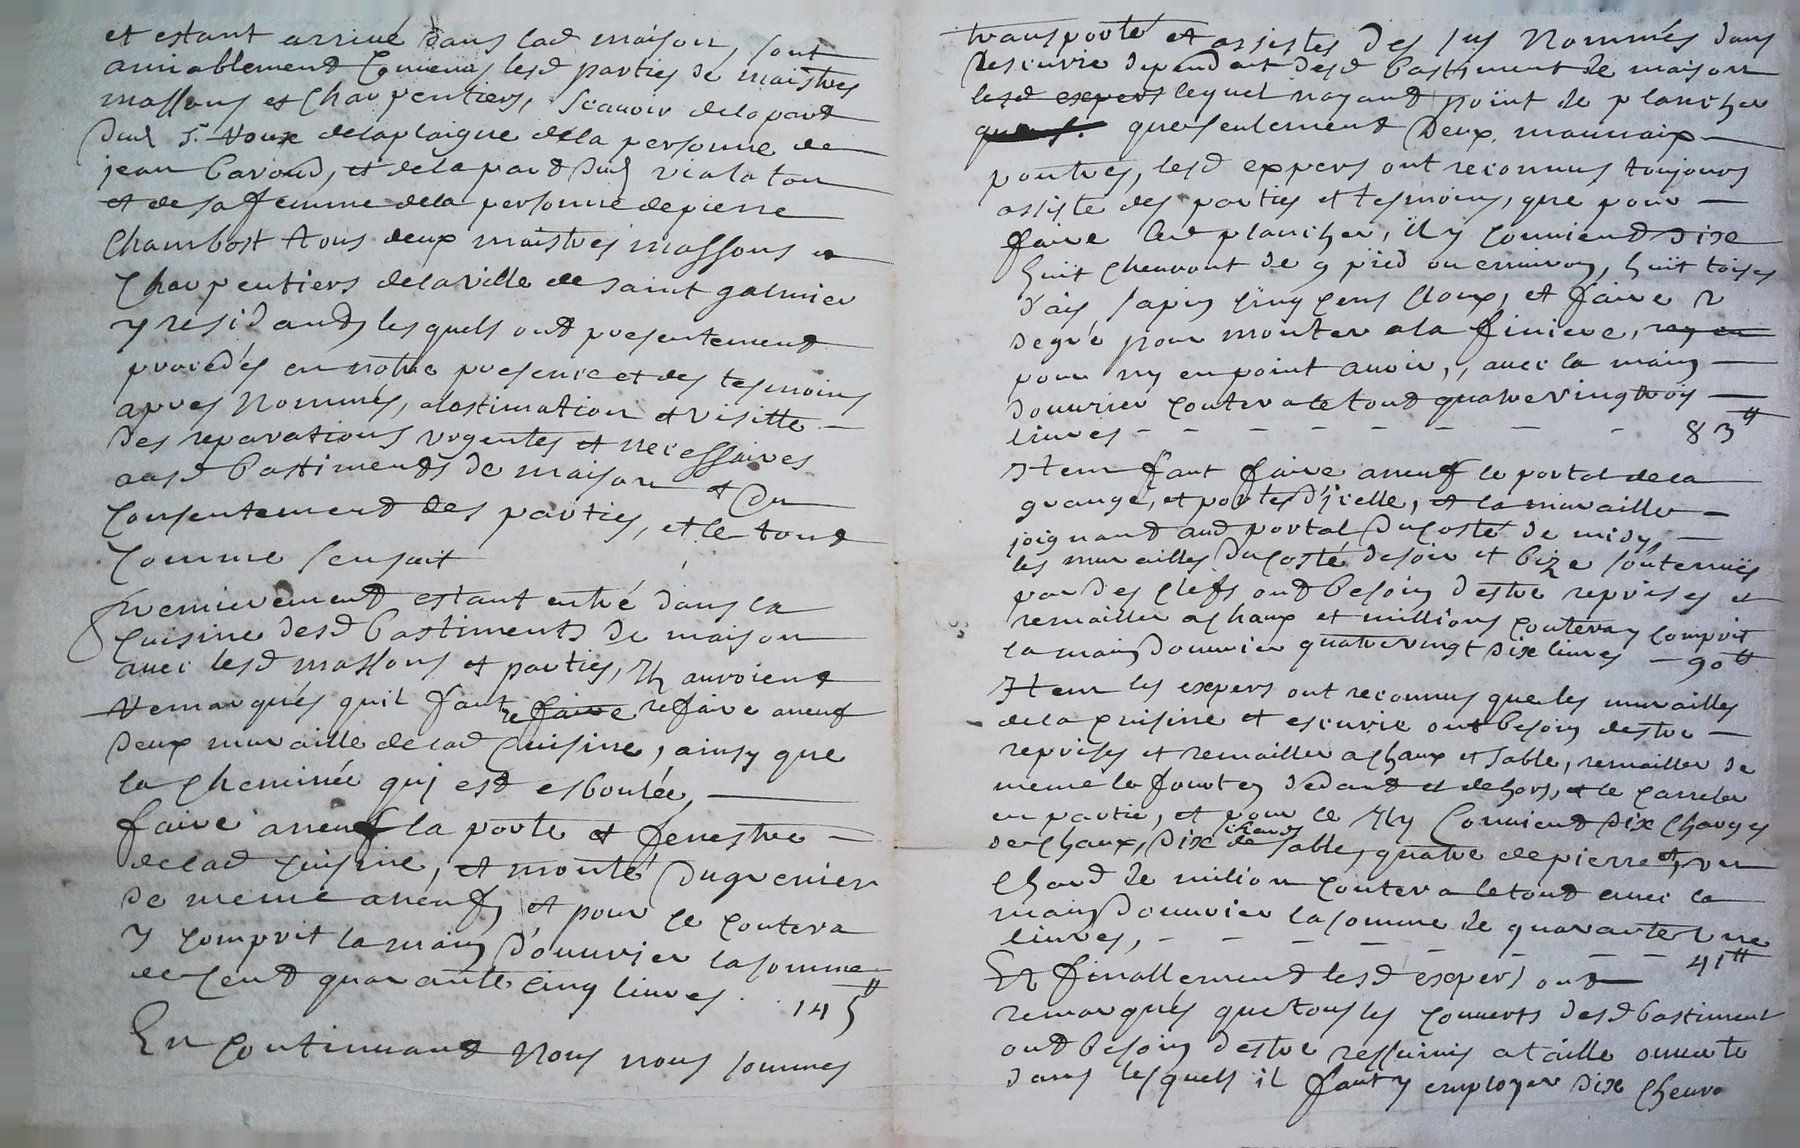 et estant arrivé dans lad maison, sont
amiablement convenus lesd parties de maistres
massons et charpentiers, scavoir de la part
dud Sr. Roux delaplaigne de la personne de
jean Baroud, et de la part dud vialaton
et de sa femme de la personne de pierre
Chambost tous deux maistres massons et
charpentiers de la ville de saint galmier
y residants lesquels ont presentement
procedés en notre presence et des tesmoins
apres Nommés, a lastimation et visitte
des reparations urgentes et necessaires
ausd bastiments de maison et du
consentement des parties, et le tout
comme sensuit
Premierement estant entré dans la
cuisine desd bastiments de maison
avec lesd massons et parties, Ils auroient
remarqués quil faut refaire refaire aneuf
deux muraille de lad cuisine, ainsy que
la cheminée qui est esboulée,
faire aneuf la porte et fenestre
de lad cuisine, et monté du grenier
de meme aneuf, et pour ce coutera
y comprit la main d'ouvrier la somme
de cent quarante cinq livres . . 145tt
En continuant Nous nous sommes
transporté et assistés des sus Nommés dans
lescurie dependant desd bastiment de maison
lesd expers lequel nayant point de plancher
que seulement deux mauvaix
poutres, lesd expers ont reconnus toujours
assisté des parties et tesmoins, que pour
faire led plancher, il y convient dixe
huit chevront de 9 pied ou environ, huit toises
d'ais sapin cinq cens cloux, et faire 2
degré pour monter a la finiere, ny en
pour ny en point avoir, avec la main
douvrier coutera le tout quatre vingt trois
livres - - - - - - - 83tt
Item faut faire aneuf le portal de la
grange, et portes d'icelle, et la muraille
joignant aud portal du costé de midy,
les murailles du costé de soir et bize soutenuës
par des clefs ont besoin destre reprises et
remailler a chaux et millions coutera y comprit
la main douvrier quatre vingt dix livres - 90tt
Item les expers ont reconnus que les murailles
de la cuisine et escurie ont besoin destre
reprises et remailler a chaux et sable, remailler de
meme le four tn dedant et dehors, et le carreler
en partie, et pour ce Il y convient dix charges
de chaux, dix chars de sable, quatre de pierre et, un
chard de milion coutera le tout avec la
main douvrier la somme de quarante Une
livres, - - - - - - - 41tt
Et finallement lesd expers ont
remarqués que tous les couverts desd bastiment
ont besoin destre ressuivis a taille ouverte
dans lesquels il faut y employer dix chevro